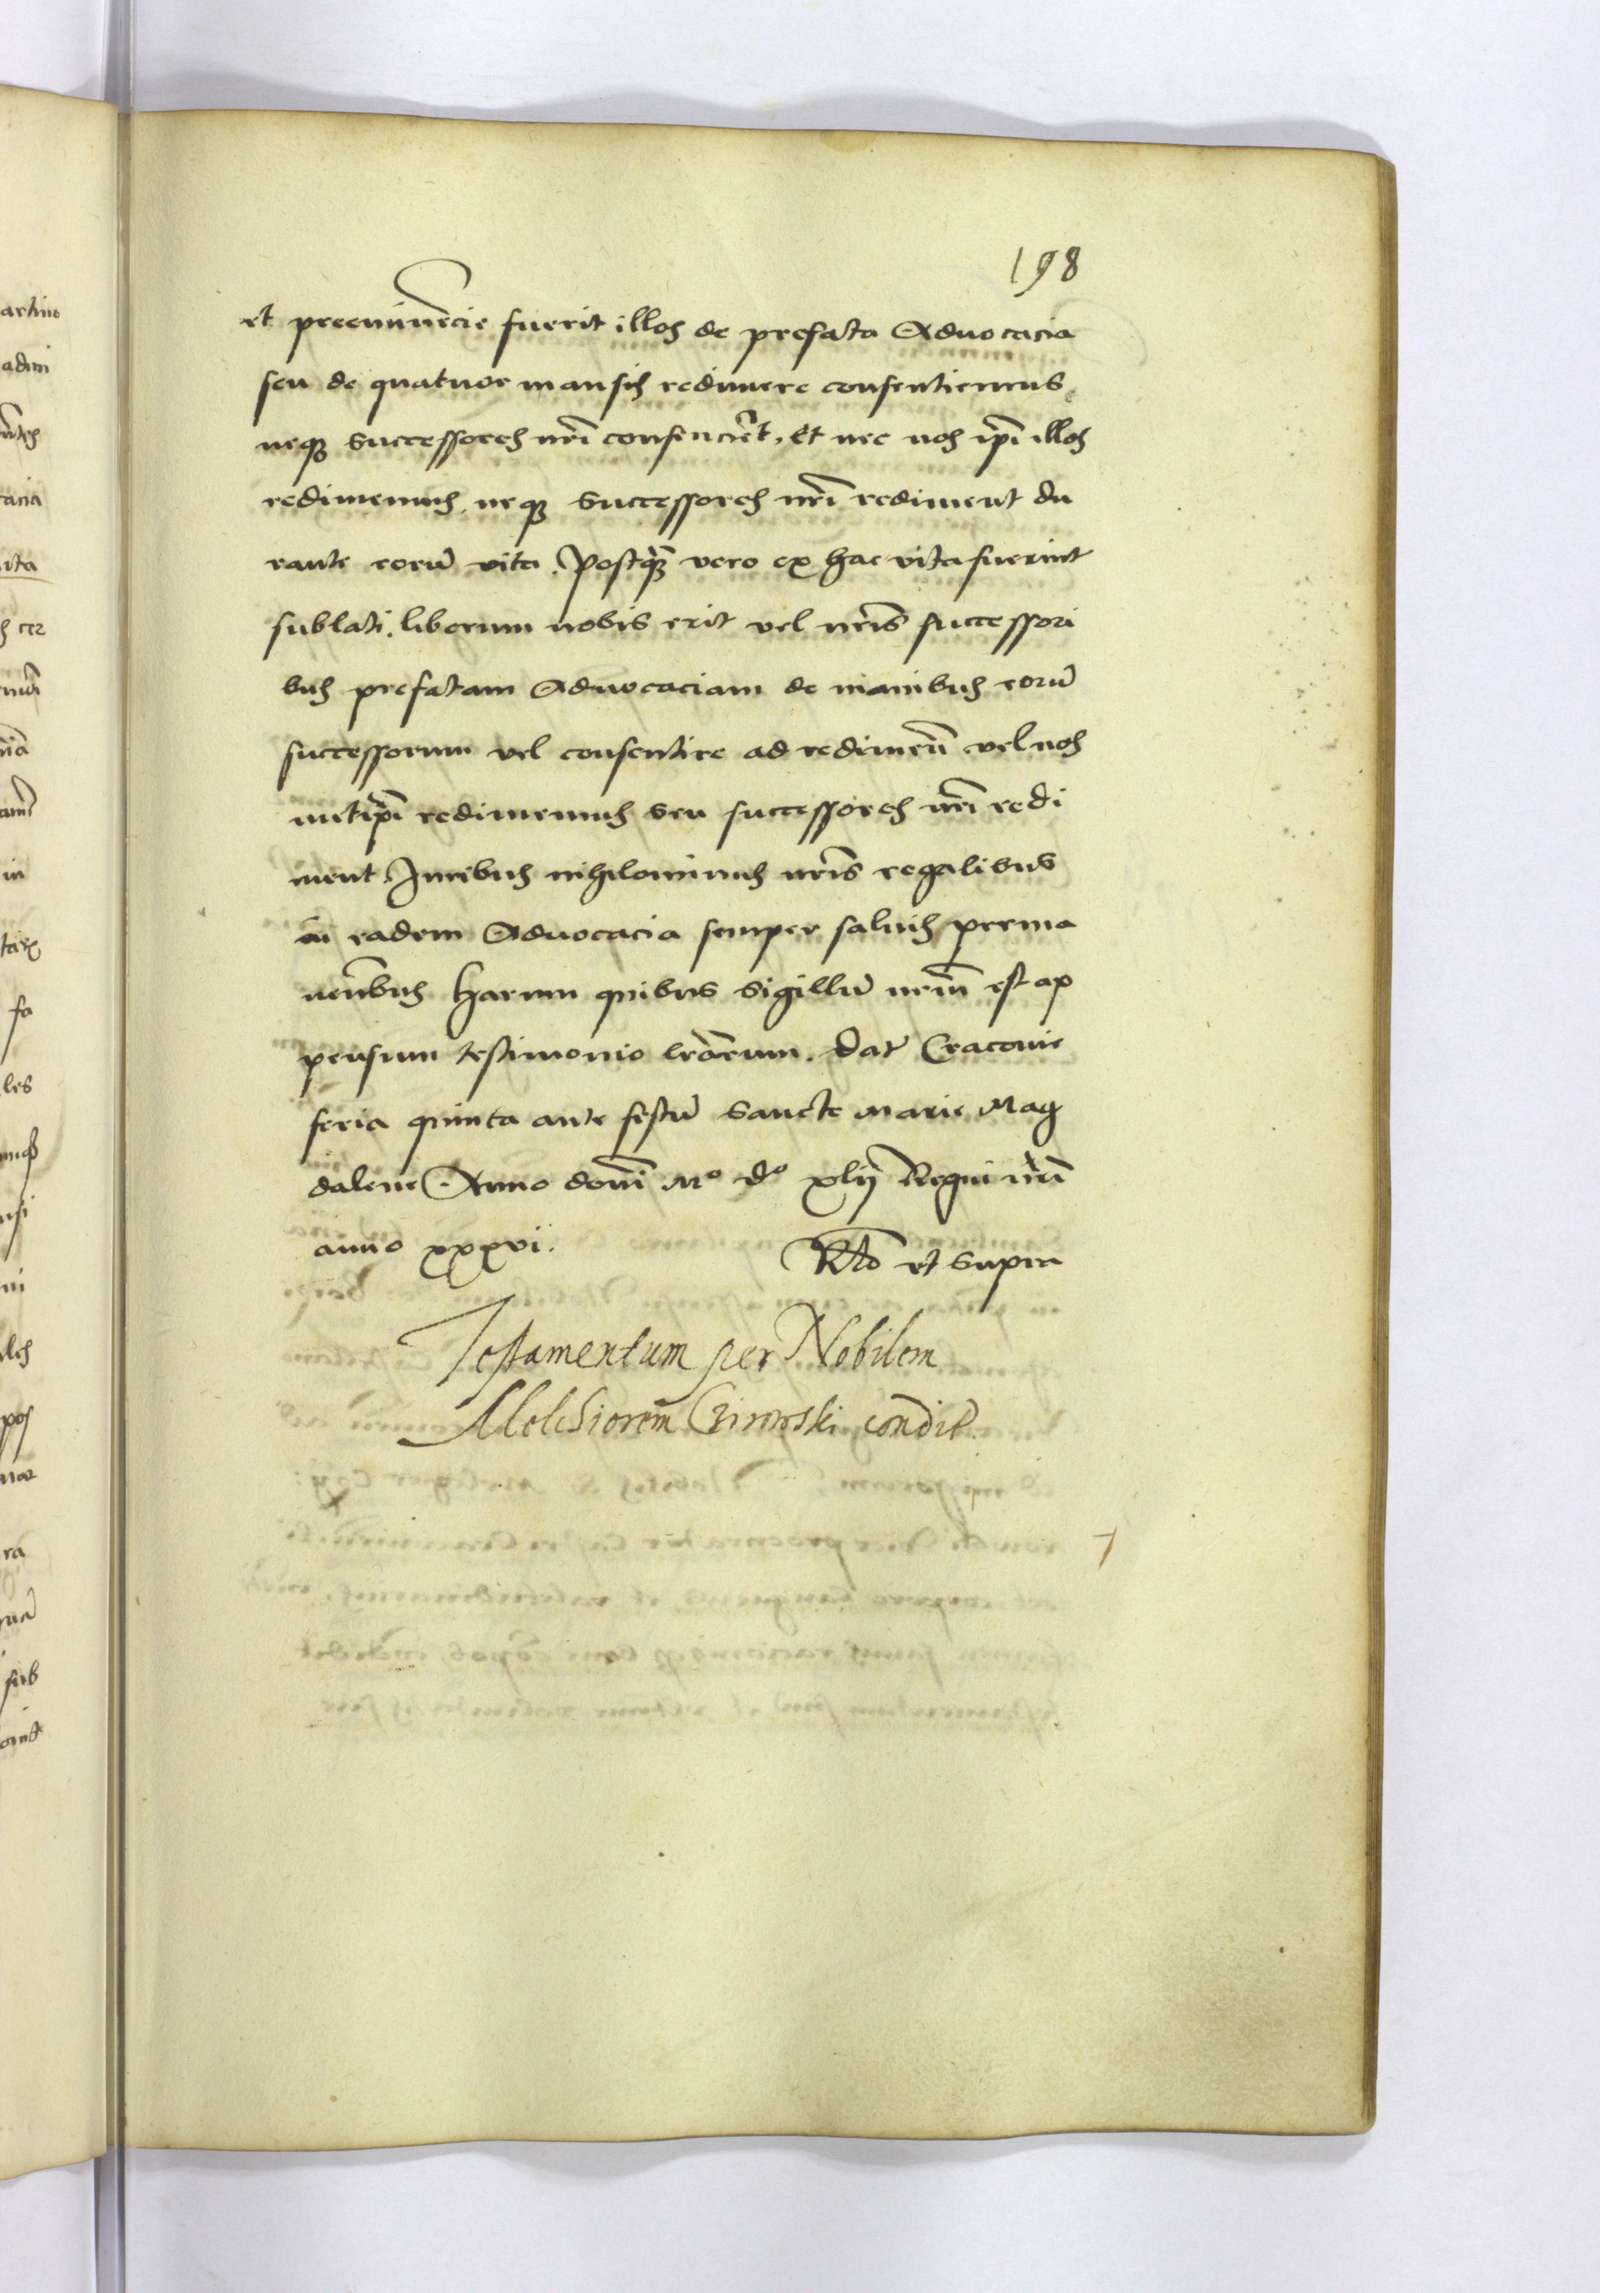 198
et preeminẽcie fuerit illos de prefata Aduocacia
seu de quatuor mansis redimere consentiemus
neqz successores nrĩ consencient, Et nec nos ipĩ illos
redimemus, neqz successores nrĩ rediment du
rante eorũ vita. Postqz̃ vero ex hac vita fuerint
sublati. liberum nobis erit vel nrĩs successori
bus prefatam Aduocaciam de manibus eorũ
successorum vel consentire ad redimeñ vel nos
metipĩ redimemus seu successores nrĩ redi
ment. Iuribus nihilominus nrĩs regalibus
in eadem Aduocacia semper saluis perma
neñbus Harum quibus sigillũ nrm̃ est ap
pensum testimonio lr̃arum. Dat Cracouie
feria quinta ante festũ Sancte Marie Mag
dalene Anno domĩ Mº dº xlij Regni nrĩ
anno xxxvi.
Rtõ vt supra
Testamentum per Nobilem
Melchiorem condit̃.